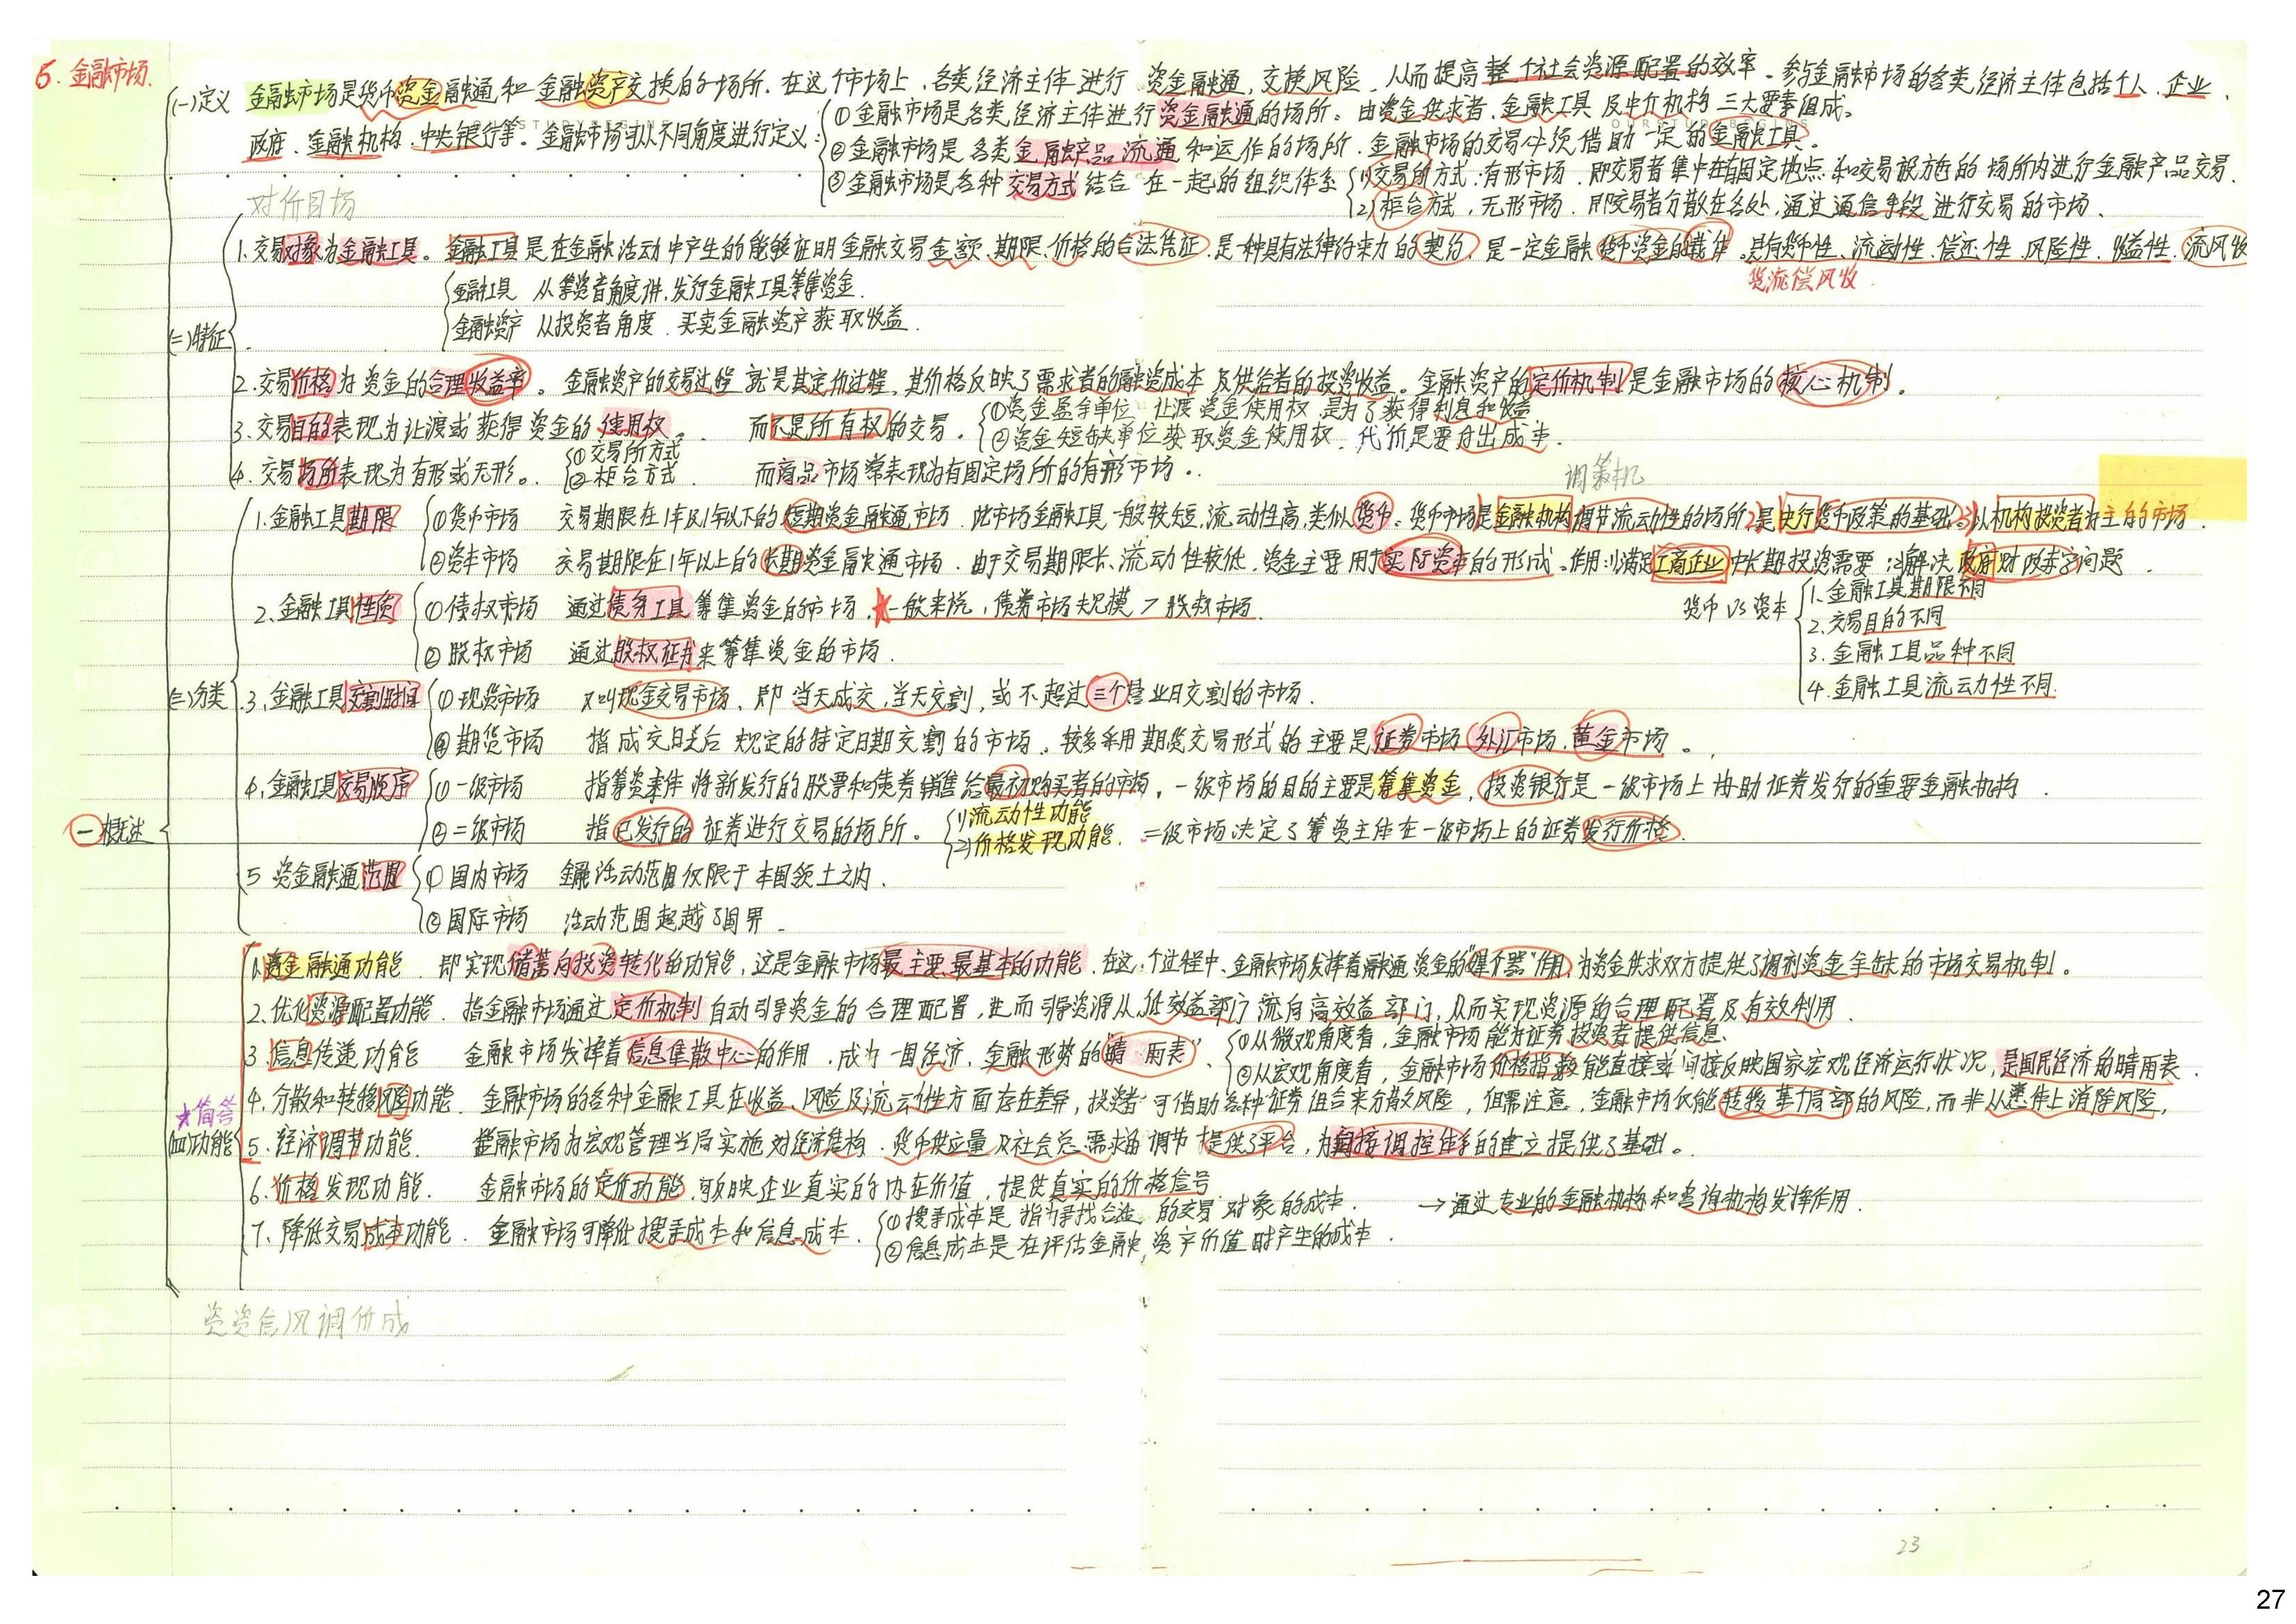 6. 金融市场.
(一)定义 金融市场是货币资金融通和金融资产交换的场所. 在这个市场上, 各类经济主体进行资金融通, 交换风险, 从而提高整个社会资源配置的效率. 参与金融市场的各类经济主体包括个人、企业、
政府、金融机构、中央银行等。金融市场可以从不同角度进行定义:
①金融市场是各类经济主体进行资金融通的场所。由资金供求者、金融工具及中介机构三大要素组成。
②金融市场是各类金融产品流通和运作的场所. 金融市场的交易必须借助一定的金融工具。
③金融市场是各种交易方式结合在一起的组织体系
(1)交易所方式:有形市场. 即交易者集中在有固定地点和交易设施的场所内进行金融产品交易.
(2)柜台方式, 无形市场. 即交易者分散在各处, 通过通信手段进行交易的市场.
对价目场
(二)特征
1.交易对象为金融工具。金融工具是在金融活动中产生的能够证明金融交易金额、期限、价格的合法凭证, 是一种具有法律约束力的契约, 是一定金融货币资金的载体. 具有货币性、流动性、偿还性、风险性、收益性. 流风收
货流偿风收.
金融工具 从筹资者角度讲, 发行金融工具筹集资金.
金融资产 从投资者角度. 买卖金融资产获取收益.
2.交易价格为资金的合理收益率。金融资产的交易过程就是其定价过程. 其价格反映了需求者的融资成本及供给者的投资收益。金融资产的定价机制是金融市场的核心机制.
3.交易目的表现为让渡或获得资金的使用权. 而不是所有权的交易.
①资金盈余单位 让渡资金使用权 是为了获得利息和收益
②资金短缺单位获取资金使用权. 代价是要付出成本.
4.交易场所表现为有形或无形。
①交易所方式
②柜台方式.
而商品市场常表现为有固定场所的有形市场.
调策机
(三)分类
1.金融工具期限 ①货币市场 交易期限在1年及1年以下的短期资金融通市场. 此市场金融工具一般较短, 流动性高, 类似货币. 货币市场 1)是金融机构调节流动性的场所 2)是央行货币政策的基础 3)以机构投资者为主的市场.
②资本市场 交易期限在1年以上的长期资金融通市场. 由于交易期限长、流动性较低. 资金主要用于实际资本的形成. 作用:1)满足工商企业中长期投资需要 2)解决政府财政赤字问题.
货币 VS 资本
1.金融工具期限不同
2.交易目的不同
3.金融工具品种不同
4.金融工具流动性不同.
2.金融工具性质 ①债权市场 通过债务工具筹集资金的市场. ★一般来说, 债券市场规模 > 股权市场.
②股权市场 通过股权证书来筹集资金的市场.
3.金融工具交割时间 ①现货市场 又叫现金交易市场, 即当天成交, 当天交割, 或不超过三个营业日交割的市场.
②期货市场 指成交日之后规定的特定日期交割的市场. 较多采用期货交易形式的主要是证券市场、外汇市场、黄金市场.
4.金融工具交易顺序 ①一级市场 指筹资主体将新发行的股票和债券销售给最初购买者的市场. 一级市场的目的主要是筹集资金, 投资银行是一级市场上协助证券发行的重要金融机构.
一 概述
②二级市场 指已发行的证券进行交易的场所.
1)流动性功能
2)价格发现功能.
二级市场决定了筹资主体在一级市场上的证券发行价格.
5 资金融通范围 ①国内市场 金融活动范围仅限于本国领土之内.
②国际市场 活动范围超越了国界.
★简答
(四)功能
1.资金融通功能. 即实现储蓄向投资转化的功能, 这是金融市场最主要、最基本的功能. 在这个过程中, 金融市场发挥着融通资金的“媒介器”作用, 为资金供求双方提供了调剂资金余缺的市场交易机制.
2.优化资源配置功能. 指金融市场通过定价机制自动引导资金的合理配置, 进而引导资源从低效益部门流向高效益部门, 从而实现资源的合理配置及有效利用.
3.信息传递功能 金融市场发挥着信息集散中心的作用, 成为一国经济、金融形势的“晴雨表”.
①从微观角度看, 金融市场能为证券投资者提供信息.
②从宏观角度看, 金融市场价格指数能直接或间接反映国家宏观经济运行状况, 是国民经济的晴雨表.
4.分散和转移风险功能. 金融市场的各种金融工具在收益、风险及流动性方面存在差异, 投资者可借助各种证券组合来分散风险, 但需注意, 金融市场仅能转移某个局部的风险, 而非从总体上消除风险,
5.经济调节功能. 金融市场为宏观管理当局实施对经济结构、货币供应量及社会总需求的调节提供了平台, 为间接调控体系的建立提供了基础.
6.价格发现功能. 金融市场的定价功能, 可反映企业真实的内在价值, 提供真实的价格信号.
7.降低交易成本功能. 金融市场可降低搜寻成本和信息成本.
①搜寻成本是指为寻找合适的交易对象的成本.
②信息成本是在评估金融资产价值时产生的成本.
→通过专业的金融机构和咨询机构发挥作用.
资资信风调价成
23
27